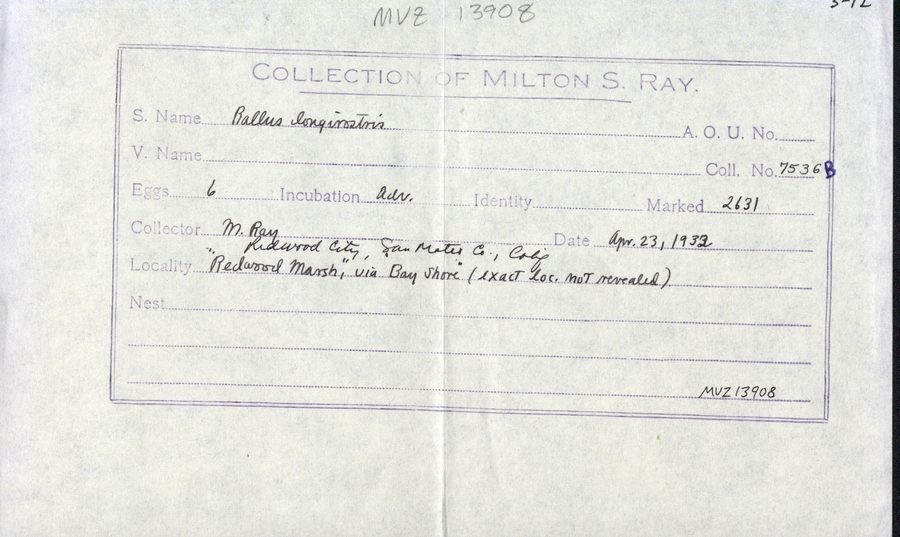 MVZ 13908
COLLECTION OF MILTON S. RAY.
S. Name Rallus longirostris A. O. U. No.
V. Name Coll. No. 7536B
Eggs 6 Incubation Adv. Identity Marked 2631
Collector M. Ray Date Apr. 23, 1932
Redwood City, San Mateo Co., Calif
Locality "Redwood Marsh," via Bay Shore (exact loc. not revealed).
Nest
MVZ 13908